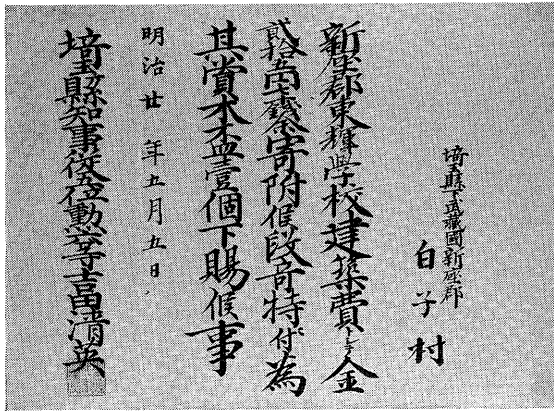 埼玉縣下武蔵國新座郡
白子村
新座郡東輝學校建築費トシテ金
貳拾五円七錢余寄附候段奇特ニ付為
其賞木盃壹個下賜候事
明治廿 年五月五日
埼玉縣知事従五位勲六等吉田清英